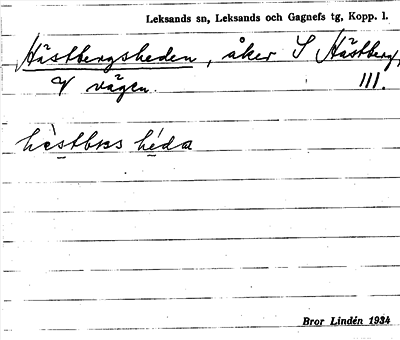 Leksands sn, Leksands och Gagnefs tg, Kopp. l.
Hästbergsheden, åker S Hästberg,
V vägen. III.
hèstbæs héda
Bror Lindén 1934